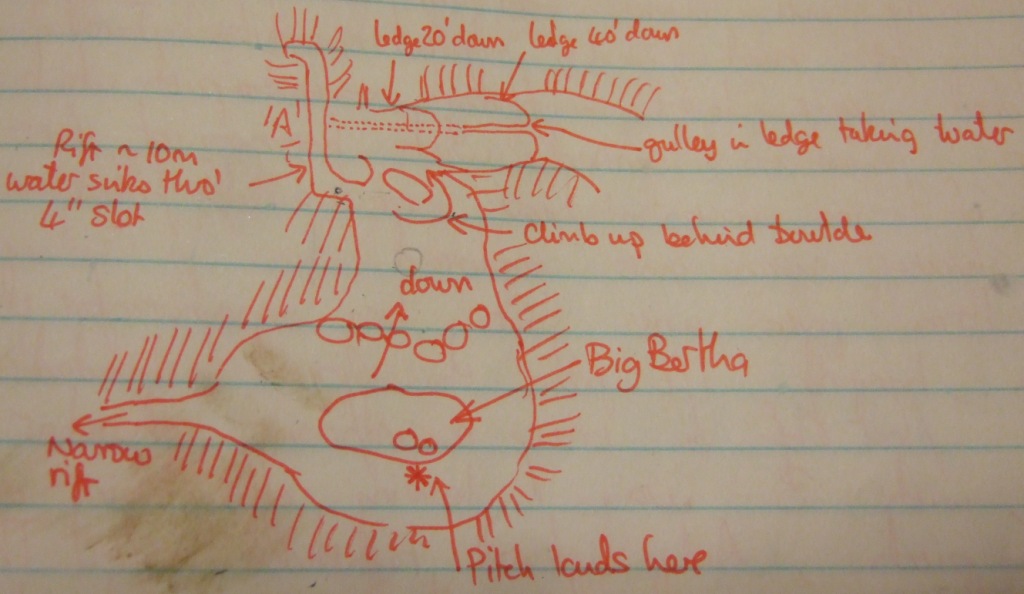 ledge 20' down
ledge 40' down
'A'
gulley in ledge taking water
Rift ~ 10m
water sinks thro'
4" slot
Climb up behind boulde
down
Big Bertha
Narrow
rift
Pitch lands here